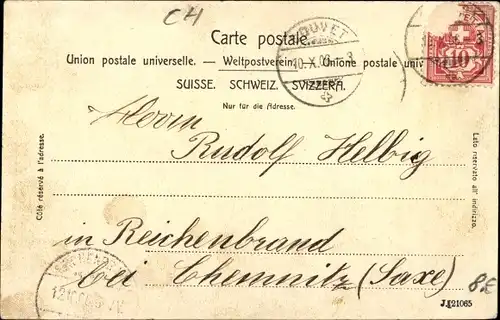 CH
Carte postale.
Union postale universelle. — Weltpostverein. — Unione postale univ
SUISSE. SCHWEIZ. SVIZZERA.
Nur für die Adresse.
COUVET
10. X. 0
10
Côté réservé à l'adresse.
Lato riservato all' indirizzo.
Herrn
Rudolf Helbig
in Reichenbrand
bei Chemnitz (Saxe)
8.E
J.121065